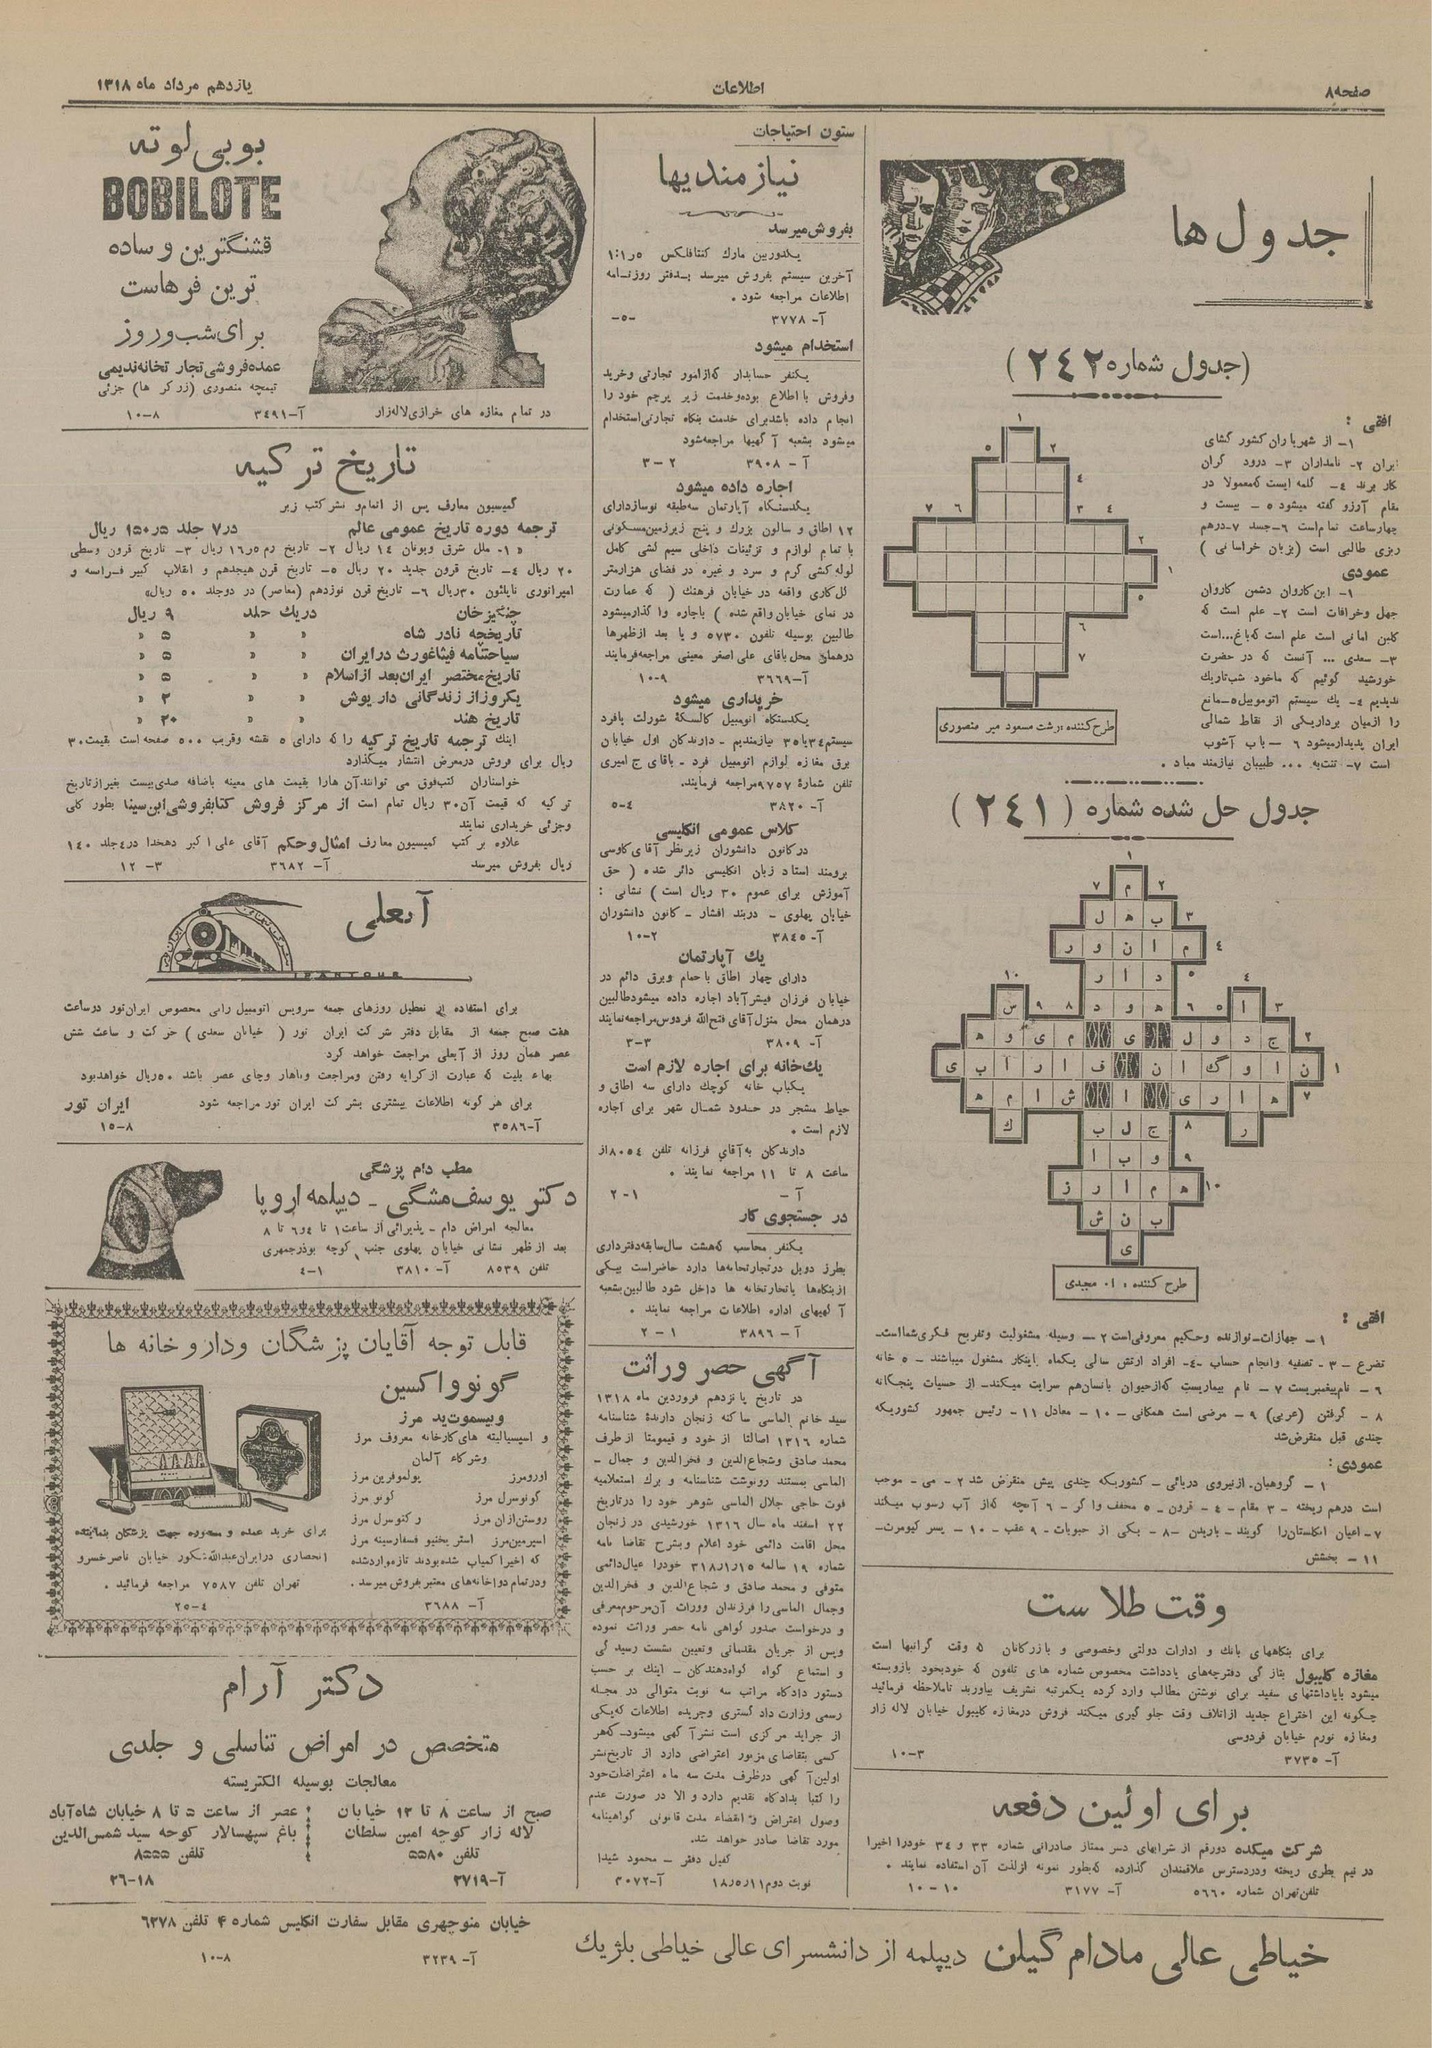 صفحه۸
اطلاعات
یازدهم مرداد ماه ۱۳۱۸
جدول ها
(جدول شماره ۲۴۲)
افقی :
۱- از شهریاران کشور گشای
ایران ۲- نامداران ۳- درود گران
کار برند ۴- کلمه ایست که معمولا در
مقام آرزو گفته میشود ۵- بیست و
چهار ساعت تمام است ۶- جسد ۷- درهم
ریزی طالبی است (بزبان خراسانی)
عمودی
۱- این کاروان دشمن کاروان
جهل و خرافات است ۲- علم است که
کلبن امانی است علم است که باغ...است
۳- سعدی ... آنست که در حضرت
خورشید گوئیم که ماخود شب تاریک
ندیدیم ۴- یك سیستم اتوموبیل ۵- مانع
را از میان برداریکی از نقاط شمالی
ایران پدیدار میشود ۶ - باب آشوب
است ۷- تنت به ... طبیبان نیازمند مباد .
طرح کننده ، رشت مسعود میر منصوری
جدول حل شده شماره (۲۴۱)
م
ب ه ل
م ا ن و ر
د ا ر
ا ه و د س
ج د و ل ی م ی و ه
ن ا و گ ا ن ف ا ر ا ب ی
ه ا ر ی ا ش ا م ه
ر ج ل ب ك
و ب ا
ه م ا ر ز
ب ن ش
ی
طرح کننده ، ا. مجیدی
افقی :
۱ - جهازات- نوازنده و حکیم معروفی است ۲ - وسیله مشغولیت و تفریح فکری شما است-
تضرع - ۳- تصفیه و انجام حساب ۴- افراد ارتش سالی یکماه باینکار مشغول میباشند - ۵ خانه
۶ - نام پیغمبریست ۷ - نام بیماریست که از حیوان بانسان هم سرایت میکند- از حسیات پنجگانه
۸ - گرفتن (عربی) ۹ - مرضی است همگانی - ۱۰ - معادل ۱۱ - رئیس جمهور کشوریکه
چندی قبل منقرض شد
عمودی :
۱ - گروهبان. از نیروی دریائی - کشوریکه چندی پیش منقرض شد ۲ - می - موجب
است درهم ریخته - ۳ مقام - ۴ - قرون - ۵ مخفف واگر - ۶ آنچه که از آب رسوب میکند
۷- اعیان انگلستان را گویند - باریدن ۸- یکی از حبوبات - ۹ عقب - ۱۰ - پسر کیومرث-
۱۱ - بخشش
وقت طلاست
برای بنگاههای بانك و ادارات دولتی و خصوصی و بازرگانان که وقت گرانبها است
مغازه کلیبول بتازگی دفترچه‌های یادداشت مخصوص شماره های تلفون که خودبخود باز و بسته
میشود با یادداشتهای سفید برای نوشتن مطالب وارد کرده یکمرتبه تشریف بیاورید تا ملاحظه فرمائید
چگونه این اختراع جدید از اتلاف وقت جلوگیری میکند فروش در مغازه کلیبول خیابان لاله زار
و مغازه نورم خیابان فردوسی
آ- ۳۷۳۵ ۱۰-۳
برای اولین دفعه
شرکت میکده دو رقم از شرابهای دسر ممتاز صادراتی شماره ۳۳ و ۳۴ خود را اخیرا
در نیم بطری ریخته و در دسترس علاقمندان گذارده که بطور نمونه از لذت آن استفاده نمایند .
تلفن تهران شماره ۵۶۶۰ آ- ۳۱۷۷ ۱۰-۱۰
ستون احتیاجات
نیازمندیها
بفروش میرسد
یکدوربین مارك کنتافلکس ۵ر۱:۱
آخرین سیستم بفروش میرسد بدفتر روزنامه
اطلاعات مراجعه شود .
آ- ۳۷۷۸ -۵-
استخدام میشود
یکنفر حسابدار که از امور تجارتی و خرید
وفروش با اطلاع بوده و خدمت زیر پرچم خود را
انجام داده باشد برای خدمت بنگاه تجارتی استخدام
میشود بشعبه آگهیها مراجعه شود
آ - ۳۹۰۸ ۲-۳
اجاره داده میشود
یکدستگاه آپارتمان سه طبقه نوساز دارای
۱۲ اطاق و سالون بزرك و پنج زیرزمین مسکونی
با تمام لوازم و تزئینات داخلی سیم کشی کامل
لوله کشی گرم و سرد و غیره در فضای هزارمتر
گل کاری واقعه در خیابان فرهنك ( که عمارت
در نمای خیابان واقع شده ) باجاره واگذار میشود
طالبین بوسیله تلفون ۵۷۳۰ و یا بعد از ظهرها
در همان محل باقای علی اصغر معینی مراجعه فرمایند
آ-۳۶۶۹ ۱۰-۹
خریداری میشود
یکدستگاه اتومبیل کالسکه شورلت یا فرد
سیستم ۳۴ یا ۳۵ نیازمندیم - دارندگان اول خیابان
برق مغازه لوازم اتومبیل فرد - باقای ج امیری
تلفن شماره ۹۷۵۷ مراجعه فرمایند.
آ- ۳۸۲۰ ۵-۴
کلاس عمومی انگلیسی
در کانون دانشوران زیر نظر آقای کاوسی
برومند استاد زبان انگلیسی دائر شده ( حق
آموزش برای عموم ۳۰ ریال است ) نشانی :
خیابان پهلوی - دربند افشار - کانون دانشوران
آ- ۳۸۴۵ ۱۰-۲
یك آپارتمان
دارای چهار اطاق با حمام و برق دائم در
خیابان فرزان فیشرآباد اجاره داده میشود طالبین
در همان محل منزل آقای فتح‌الله فردوس مراجعه نمایند
آ- ۳۸۰۹ ۳-۳
یك خانه برای اجاره لازم است
یکباب خانه کوچك دارای سه اطاق و
حیاط مشجر در حدود شمال شهر برای اجاره
لازم است .
دارندگان به آقای فرزانه تلفن ۸۰۵۴ از
ساعت ۸ تا ۱۱ مراجعه نمایند .
آ - ۲-۱
در جستجوی کار
یکنفر محاسب که هشت سال سابقه دفترداری
بطرز دوبل در تجارتخانه‌ها دارد حاضر است بیکی
از بنگاه‌ها یا تجارتخانه ها داخل شود طالبین بشعبه
آگهیهای اداره اطلاعات مراجعه نمایند .
آ - ۳۸۹۶ ۲-۱
آگهی حصر وراثت
در تاریخ پانزدهم فروردین ماه ۱۳۱۸
سید خانم الماسی ساکنه زنجان دارندۀ شناسنامه
شماره ۱۳۱۶ اصالتا از خود و قیمومتا از طرف
محمد صادق و شجاع‌الدین و فخرالدین و جمال -
الماسی بمستند رونوشت شناسنامه و برك استعلامیه
فوت حاجی جلال الماسی شوهر خود را در تاریخ
۲۲ اسفند ماه سال ۱۳۱۶ خورشیدی در زنجان
محل اقامت دائمی خود اعلام و بشرح تقاضا نامه
شماره ۱۹ سالمه ۱۵ر۱ر۳۱۸ خود را عیال دائمی
متوفی و محمد صادق و شجاع‌الدین و فخرالدین
وجمال الماسی را فرزندان و وراث آن مرحوم معرفی
و درخواست صدور گواهی نامه حصر وراثت نموده
وپس از جریان مقدماتی و تعیین نشست رسیدگی
و استماع گواه گواه‌دهندگان - اینك بر حسب
دستور دادگاه مراتب سه نوبت متوالی در مجله
رسمی وزارت دادگستری و جریده اطلاعات که یکی
از جراید مرکزی است نشر آگهی میشود- که هر
کسی بتقاضای مزبور اعتراضی دارد از تاریخ نشر
اولین آگهی در ظرف مدت سه ماه اعتراضات خود
را کتبا بدادگاه تقدیم دارد و الا در صورت عدم
وصول اعتراض و انقضاء مدت قانونی گواهینامه
مورد تقاضا صادر خواهد شد.
کفیل دفتر - محمود شیدا
نوبت دوم ۱۱ر۵ر۱۸ آ-۳۰۷۲
بوبی لوته
BOBILOTE
قشنگترین و ساده
ترین فرهاست
برای شب و روز
عمده فروشی تجارتخانه ندیمی
تیمچه منصوری (زرگر ها) جزئی
در تمام مغازه های خرازی لاله زار آ-۳۴۹۱ ۱۰-۸
تاریخ ترکیه
کمیسیون معارف پس از اتمام و نشر کتب زیر
ترجمه دوره تاریخ عمومی عالم در ۷ جلد ۵ر۱۵۰ ریال
» ۱- ملل شرق و یونان ۱۴ ریال ۲- تاریخ رم ۵ر۱۶ ریال ۳- تاریخ قرون وسطی
۲۰ ریال ۴- تاریخ قرون جدید ۲۰ ریال ۵- تاریخ قرن هیجدهم و انقلاب کبیر فرانسه و
امپراتوری ناپلئون ۳۰ ریال ۶- تاریخ قرن نوزدهم (معاصر) در دو جلد ۵۰ ریال»
چنگیزخان در یك جلد ۹ ریال
تاریخچه نادر شاه » » ۵ »
سیاحتنامه فیثاغورث در ایران » » ۵ »
تاریخ مختصر ایران بعد از اسلام » » ۵ »
یکروز از زندگانی داریوش » » ۲ »
تاریخ هند » » ۲۰ »
اینك ترجمه تاریخ ترکیه را که دارای ۵ نقشه و قریب ۵۰۰ صفحه است بقیمت ۳۰
ریال برای فروش در معرض انتشار میگذارد
خواستاران کتب فوق می توانند آن هارا بقیمت های معینه باضافه صدی بیست بغیر از تاریخ
ترکیه که قیمت آن ۳۰ ریال تمام است از مرکز فروش کتابفروشی ابن سینا بطور کلی
وجزئی خریداری نمایند
علاوه بر کتب کمیسیون معارف امثال و حکم آقای علی اکبر دهخدا در ۴ جلد ۱۴۰
ریال بفروش میرسد آ- ۳۶۸۲ ۱۲-۳
آبعلی
IRANTOUR
برای استفاده از تعطیل روزهای جمعه سرویس اتومبیل رانی مخصوص ایران تور دو ساعت
هفت صبح جمعه از مقابل دفتر شرکت ایران تور ( خیابان سعدی ) حرکت و ساعت شش
عصر همان روز از آبعلی مراجعت خواهد کرد
بهاء بلیت که عبارت از کرایه رفتن و مراجعت و ناهار و چای عصر باشد ۵۰ ریال خواهد بود
برای هر گونه اطلاعات بیشتری بشرکت ایران تور مراجعه شود ایران تور
آ-۳۵۸۶ ۱۵-۸
مطب دام پزشگی
دکتر یوسف مشگی - دیپلمه اروپا
معالجه امراض دام - پذیرائی از ساعت ۱ تا ۴ و ۶ تا ۸
بعد از ظهر نشانی خیابان پهلوی جنب کوچه بوذرجمهری
تلفن ۸۵۳۹ آ- ۳۸۱۰ ۴-۱
قابل توجه آقایان پزشگان و داروخانه ها
گونوواکسین
ویسموت‌ید مرز
و اسپسیالیته های کارخانه معروف مرز
و شرکاء آلمان
اورومرز یولموفرین مرز
گونوسرل مرز گونو مرز
روستن ازان مرز و کنوسرل مرز
اسپرمین مرز استر یخنیو فسفارسینه مرز
که اخیرا کمیاب شده بودند تازه وارد شده
و در تمام دواخانه‌های معتبر بفروش میرسد .
برای خرید عمده و مشوره جهت پزشکان بنماینده
انحصاری در ایران عبدالله شکور خیابان ناصرخسرو
تهران تلفن ۷۵۸۷ مراجعه فرمائید .
آ- ۳۶۸۸ ۲۵-۴
دکتر آرام
متخصص در امراض تناسلی و جلدی
معالجات بوسیله الکتریسته
صبح از ساعت ۸ تا ۱۲ خیابان
لاله زار کوچه امین سلطان
تلفن ۵۵۸۰
آ-۲۷۱۹
عصر از ساعت ۵ تا ۸ خیابان شاه‌آباد
باغ سپهسالار کوچه سید شمس‌الدین
تلفن ۸۵۵۵
۲۶-۱۸
خیاطی عالی مادام گیلن دیپلمه از دانشسرای عالی خیاطی بلژیك
خیابان منوچهری مقابل سفارت انگلیس شماره ۴ تلفن ۶۲۷۸
آ- ۳۲۳۹ ۱۰-۸